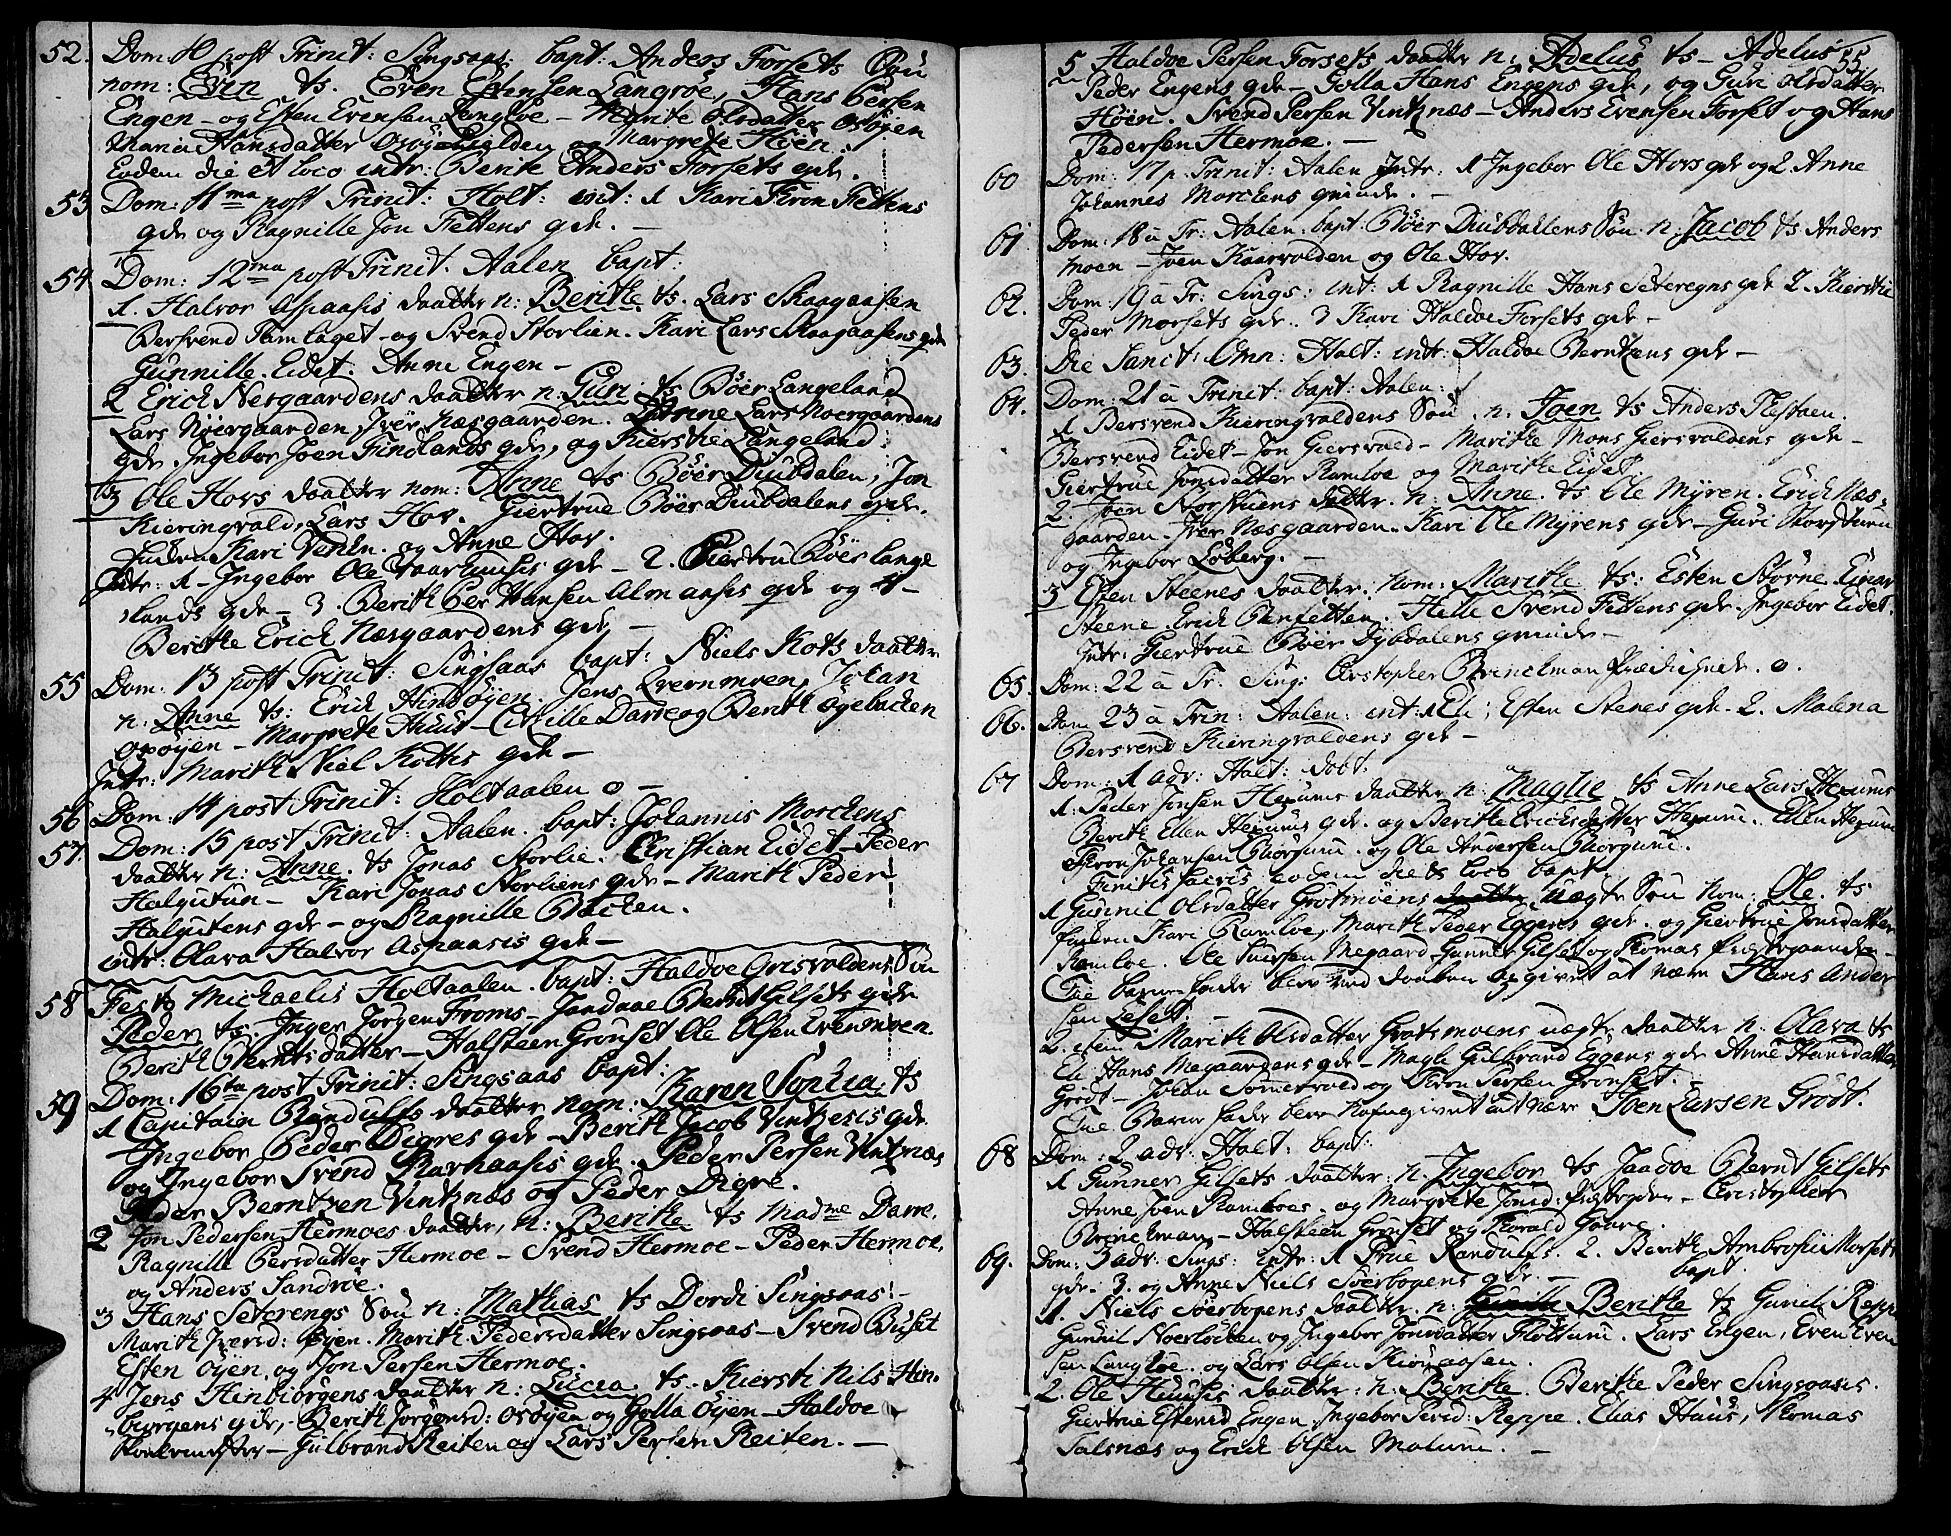 52. Dom: 10 post Trinit: Singsaas: bapt: Anders Forsets Søn
nom: Even ts. Even Estensen Langröe, Hans Persen
Engen - og Esten Evensen Langløe - Marite Olsdatter Osøyen
Maria Hansdatter Osøy og Margrete Høen.
Eodem die et loco intr: Berite Anders Forsets gde.
53 Dom: 11ma post Trinit: Holt: int: 1 Kari Thron Fettens
gde og Ragnille Jon Fettens gde. -
54 Dom: 12ma post Trinit. Aalen bapt:
1. Halvor Aspaasis daatter n: Beritke ts. Lars Skaagaasen
Bersvend Tamlaget - og Svend Storlien. Kari Lars Skaagaasens gde
Gunnille Eidet. Anne Engen -
2 Erich Nesgaardens daatter n: Guri ts Böer Langeland
Lars Nöergaarden, Iver Næsgaarden. Anne Lars Noergaardens
gde, Ingebor Joen Findlands gde, og Kierstie Langeland
3 Ole Hovs daatter nom: Anne ts Böer Diubdalen, Jon
Kieringvald, Lars Hov. Giertrue Böer Diubdalens gde.
Kari og Anne Hov.
Intr: 1 - Ingebor Ole gde - 2. Giertru Böer Lange
lands gde - 3. Berith Per Hansen Almaasis gde og 4 -
Beritke Erich Næsgaardens gde -
55 Dom: 13 post Trinit: Singsaas bapt: Niels Kots daatter
n: Anne ts: Erich Hinböyen. Jens Qvernmoen, Johan
Osøyen - Margrete Huus - Darre og Berith Øgebacken
Intr: Marith Niel Kottis gde -
56 Dom: 14 post Trinit: Holtaalen o -
57. Dom: 15 post Trinit: Aalen. bapt: Johannis Morckens
daatter n: Anne. ts Jonas Storlie. Christian Eidet - Peder
Halgutun - Kari Jonas Storliens gde - Marith Peder
Halgutens gde - og Ragnille Backen.
intr: Olava Halvor Aspaasis gde -
58 Festo Michaelis Holtaalen. bapt: Haldoe Grisvoldens Søn
Peder ts. Inger Jørgen Froms - Berent Gilsets gde
Berith Berntsdatter - Halsteen Grønset Ole Olsen Evenmoen.
59 Dom: 16ta post Trinit: Singsaas bapt:
1 Capitain Randulfs daatter nom: Karen Sophia ts
Ingebor Peder Digres gde - Berith Jacob Vintzenis gde
og Ingebor Svend Ramhaasis gde. Peder Persen Vintznæs
Peder Berntzen Vintznæs og Peder Digre.
2 Jon Pedersen Hermoes daatter, n: Beritke ts Madme Darre,
Ragnille Persdatter Hermoe - Svend Hermoe - Peder Hermoe,
og Anders Sandröe.
3 Hans Seterengs Søn n: Mathias ts Dordi Singsaas -
Marith Iversd: Øyen. Marith Pedersdatter Singsaas - Svend Buset
Esten Öyen, og Jon Persen Hermoe.
4 Jens Hinbiörgens daatter n: Lucia ts. Kiersti Nils Hin,
burgens gde, - Berith Jorgensd: Osøyen og Golla Öyen - Haldoe
- Gulbrand Reiten og Lars Persen Reiten. -
55
5 Haldoe Persen Forsets daatter n: Adelus ts - Adelus
Peder Engens gde - Golla Hans Engens gde, og Guri Olsdatter
Höen. Svend Persen Vintznæs - Anders Evensen Forset og Hans
Pedersen Hermoe. -
60 Dom: 17 p. Trinit: Aalen Intr: 1 Ingebor Ole Hovs gde og 2. Anne
Johannes Morckens qvinde. -
61 Dom: 18 a Tr: Aalen: bapt: Böer Diubdalens Søn n: Jacob ts Anders
moen - Joen Kaarvolden og Ole Hov.
62. Dom: 19 a Tr: Sings: int: 1 Ragnille Hans Seteregns gde 2. Kierstie
Peder Morsets gde. 3 Kari Haldoe Forsets gde -
63. Die Sanct: Omn: Halt: intr: Haldoe Berntzens gde -
64. Dom: 21 a Trinit: bapt: Aalen:
1 Bersvend Kieringvaldens Søn. n: Joen ts Anders
Bersvend Eidet - Jon Giersvald - Maritke Mons Giersvaldens gde -
Giertrue Jonsdatter Ramloe og Maritke Eidet.
2. Joen Storstuens detter. n: Anne. ts Ole Myren. Erich Næs,
gaarden. Iver Næsgaarden. Kari Ole Myrens gde - Guri Storstuen
og Ingebor Loberg. -
3 Esten Steenes daatter. nom: Maritke ts: Esten Størne. Einar
Steene. Erich. Helle Svend Fettens gde. Ingebor Eidet.
Intr: Giertrue Böer Dybdalens qvinde -
65. Dom: 22 a Tr: Sing: Christopher Brinckman Prædichede. o.
66. Dom 23 a Trin: Aalen: int: 1 Eli, Esten Stenes gde. 2. Malena
Bersvend Kieringvaldens gde -
67 Dom: 1 adv: Halt: dobt:
1. Peder Jonsen Hegums daatter n: Maglie ts Anne Lars Hexums
Berith Ellen Hexums gde. og Beritke Erichsdatter Hexum. Ellen Hexum
Thron Johansen Borgum. og Ole Andersen Borgum.
Finitis sacris eodem die et loco bapt.
1 Gunnil Olsdatter Grötmoens uægte Søn nom: Ole. ts
Kari Ramloe, Marith Peder Eggens gde. og Giertrue Jonsdatter
Ramloe. Ole Iversen Megaard, Gunner Gilset og Thomas
Til barne fader blev ved daaben opgivet at være Hans Ander
sen Leset. -
2. item Marith Olsdatter Grotmoens uægte daatter n: Olava ts
Eli Hans Megaardens gde - Magli Gulbrand Eggens gde Anne Hansdatter
Grøt - Johan og Thron Persen Grønset.
Til Barne fader blev nafngivet at være Joen Larsen Grödt.
68 Dom: 2 adv: Halt: bapt:
1 Gunner Gilsets daatter: n: Ingebor ts Jaadoe Bernt Gilsets
Anne Joen Ramloes. og Margrete Jonsd: - Christopher
Brinckman - Halsteen Grønset og Thorald Gaare.
69. Dom: 3 adv: Sings: intr: 1 Frue Randulfs. 2. Berith Ambrosii Morsets
gde. 3. og Anne Niels Soerbogens gde. - bapt.
1. Niels Soerbogens daatter. n: Beritke ts Gunil Reppe
Gunnil Noerlöcken og Ingebor Jonsdatter Flöttum. Lars Engen, Even Even
sen Langloe. og Lars Olsen Kiönaasen.
2. Ole Huusis daatter: n: Beritke. Beritke Peder Singsaasis.
Giertrue Estensd Engen, Ingebor Persd: Reppe. Elias Huus, Thomas
Talsnæs og Erich Olsen Molum. -